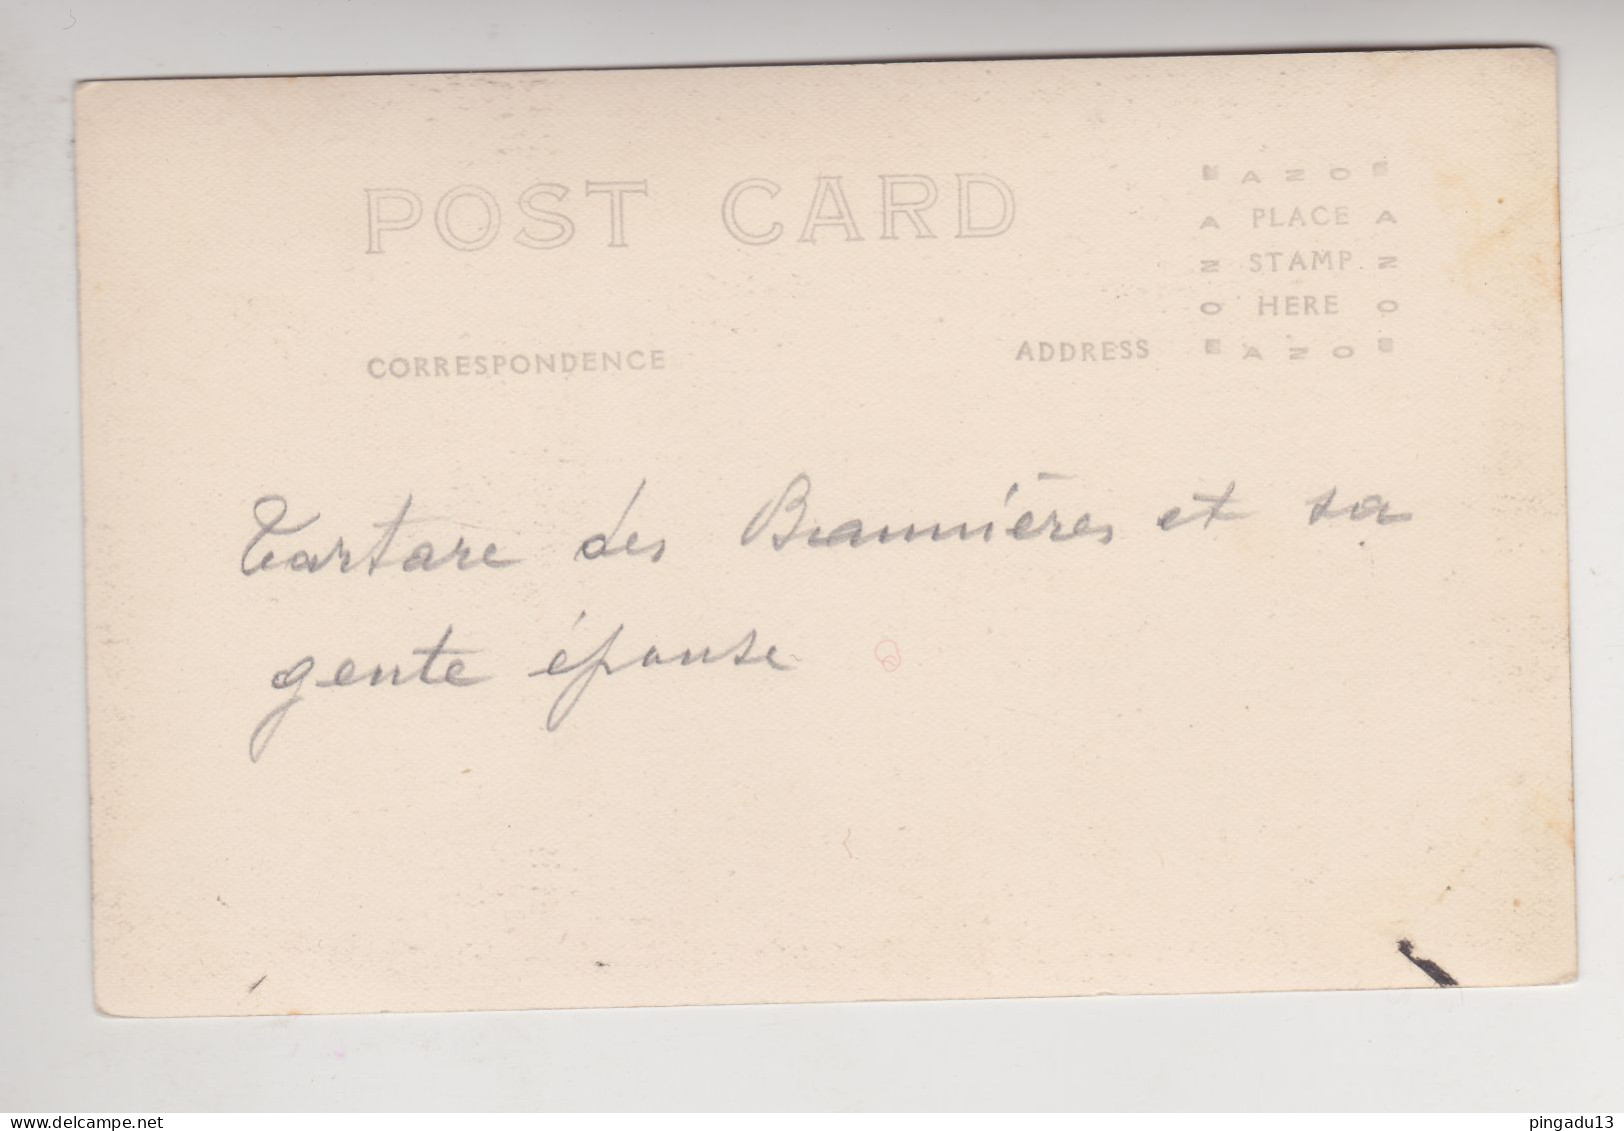 POST CARD
E AZO E
A PLACE A
Z STAMP Z
O HERE O
E AZO E
CORRESPONDENCE ADDRESS
Tartare des Bannières et sa
gente épouse
pingadu13